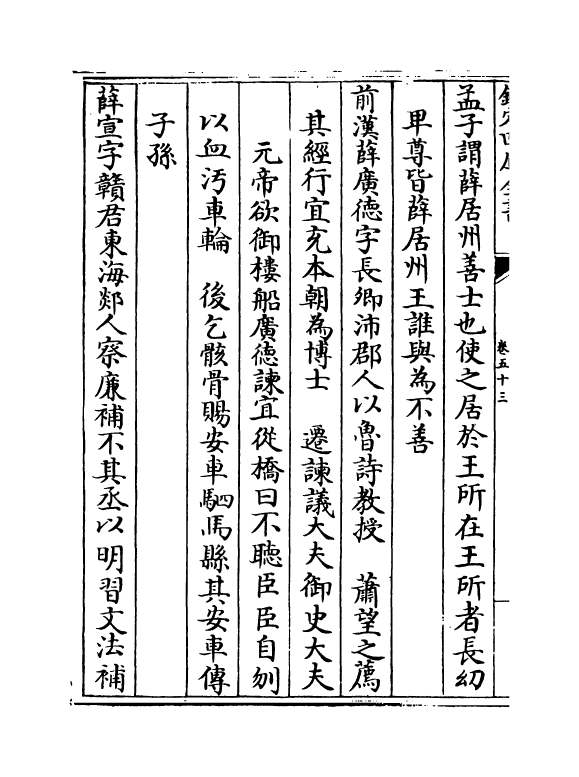 欽定四庫全書
卷五十三
孟子謂薛居州善士也使之居於王所在王所者長幼
卑尊皆薛居州王誰與為不善
前漢薛廣德字長卿沛郡人以魯詩教授　蕭望之薦
其經行宜充本朝為博士　遷諫議大夫御史大夫
元帝欲御樓船廣德諫宜從橋曰不聽臣臣自刎
以血汚車輪　後乞骸骨賜安車駟馬縣其安車傳
子孫
薛宣字贛君東海郯人察廉補不其丞以明習文法補